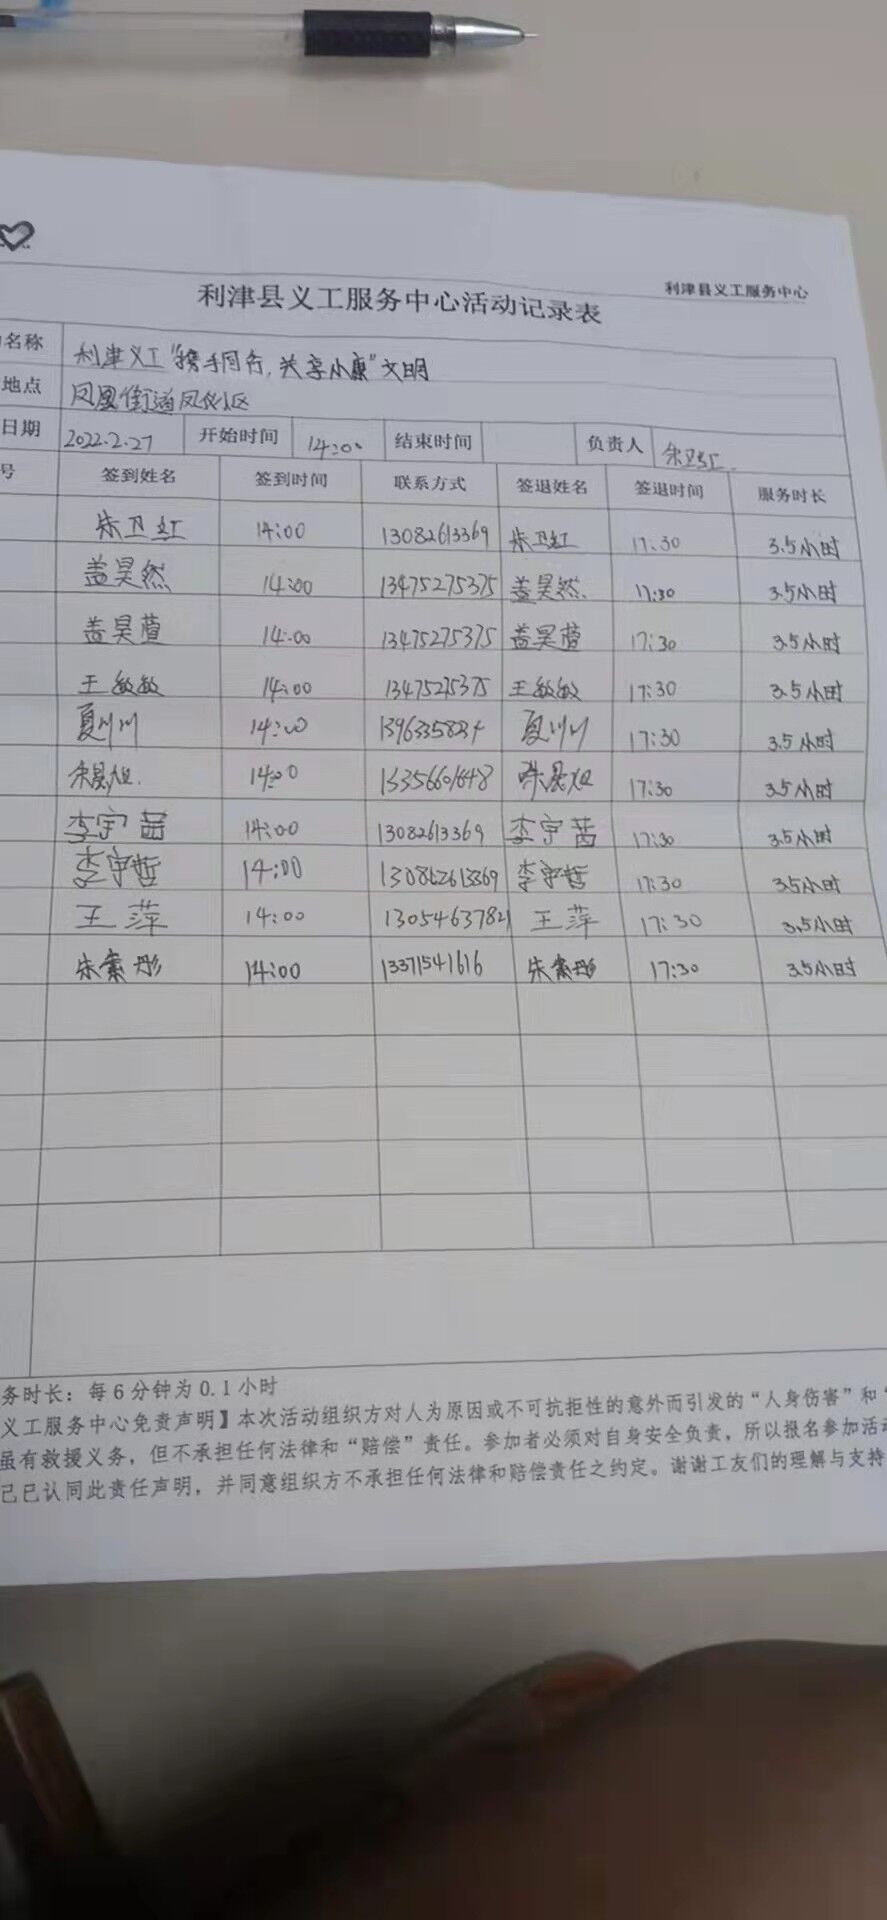 利津县义工服务中心
利津县义工服务中心活动记录表
名称 利津义工"携手同行,共享小康"文明
地点 凤凰街道凤仪小区
日期 2022.2.27 开始时间 14:00 结束时间 负责人 朱卫红
号 签到姓名 签到时间 联系方式 签退姓名 签退时间 服务时长
朱卫红 14:00 13082613369 朱卫红 17:30 3.5小时
盖昊然 14:00 13475275375 盖昊然 17:30 3.5小时
盖昊萱 14:00 13475275375 盖昊萱 17:30 3.5小时
王敏敏 14:00 13475275375 王敏敏 17:30 3.5小时
夏川川 14:00 夏川川 17:30 3.5小时
14:00 17:30 3.5小时
李宇茜 14:00 13082613369 李宇茜 17:30 3.5小时
李宇哲 14:00 李宇哲 17:30 3.5小时
王萍 14:00 13054637821 王萍 17:30 3.5小时
朱素彤 14:00 13371541616 朱素彤 17:30 3.5小时
务时长:每6分钟为0.1小时
义工服务中心免责声明】本次活动组织方对人为原因或不可抗拒性的意外而引发的“人身伤害”和“
虽有救援义务,但不承担任何法律和“赔偿”责任。参加者必须对自身安全负责,所以报名参加活动
己已认同此责任声明,并同意组织方不承担任何法律和赔偿责任之约定。谢谢工友们的理解与支持